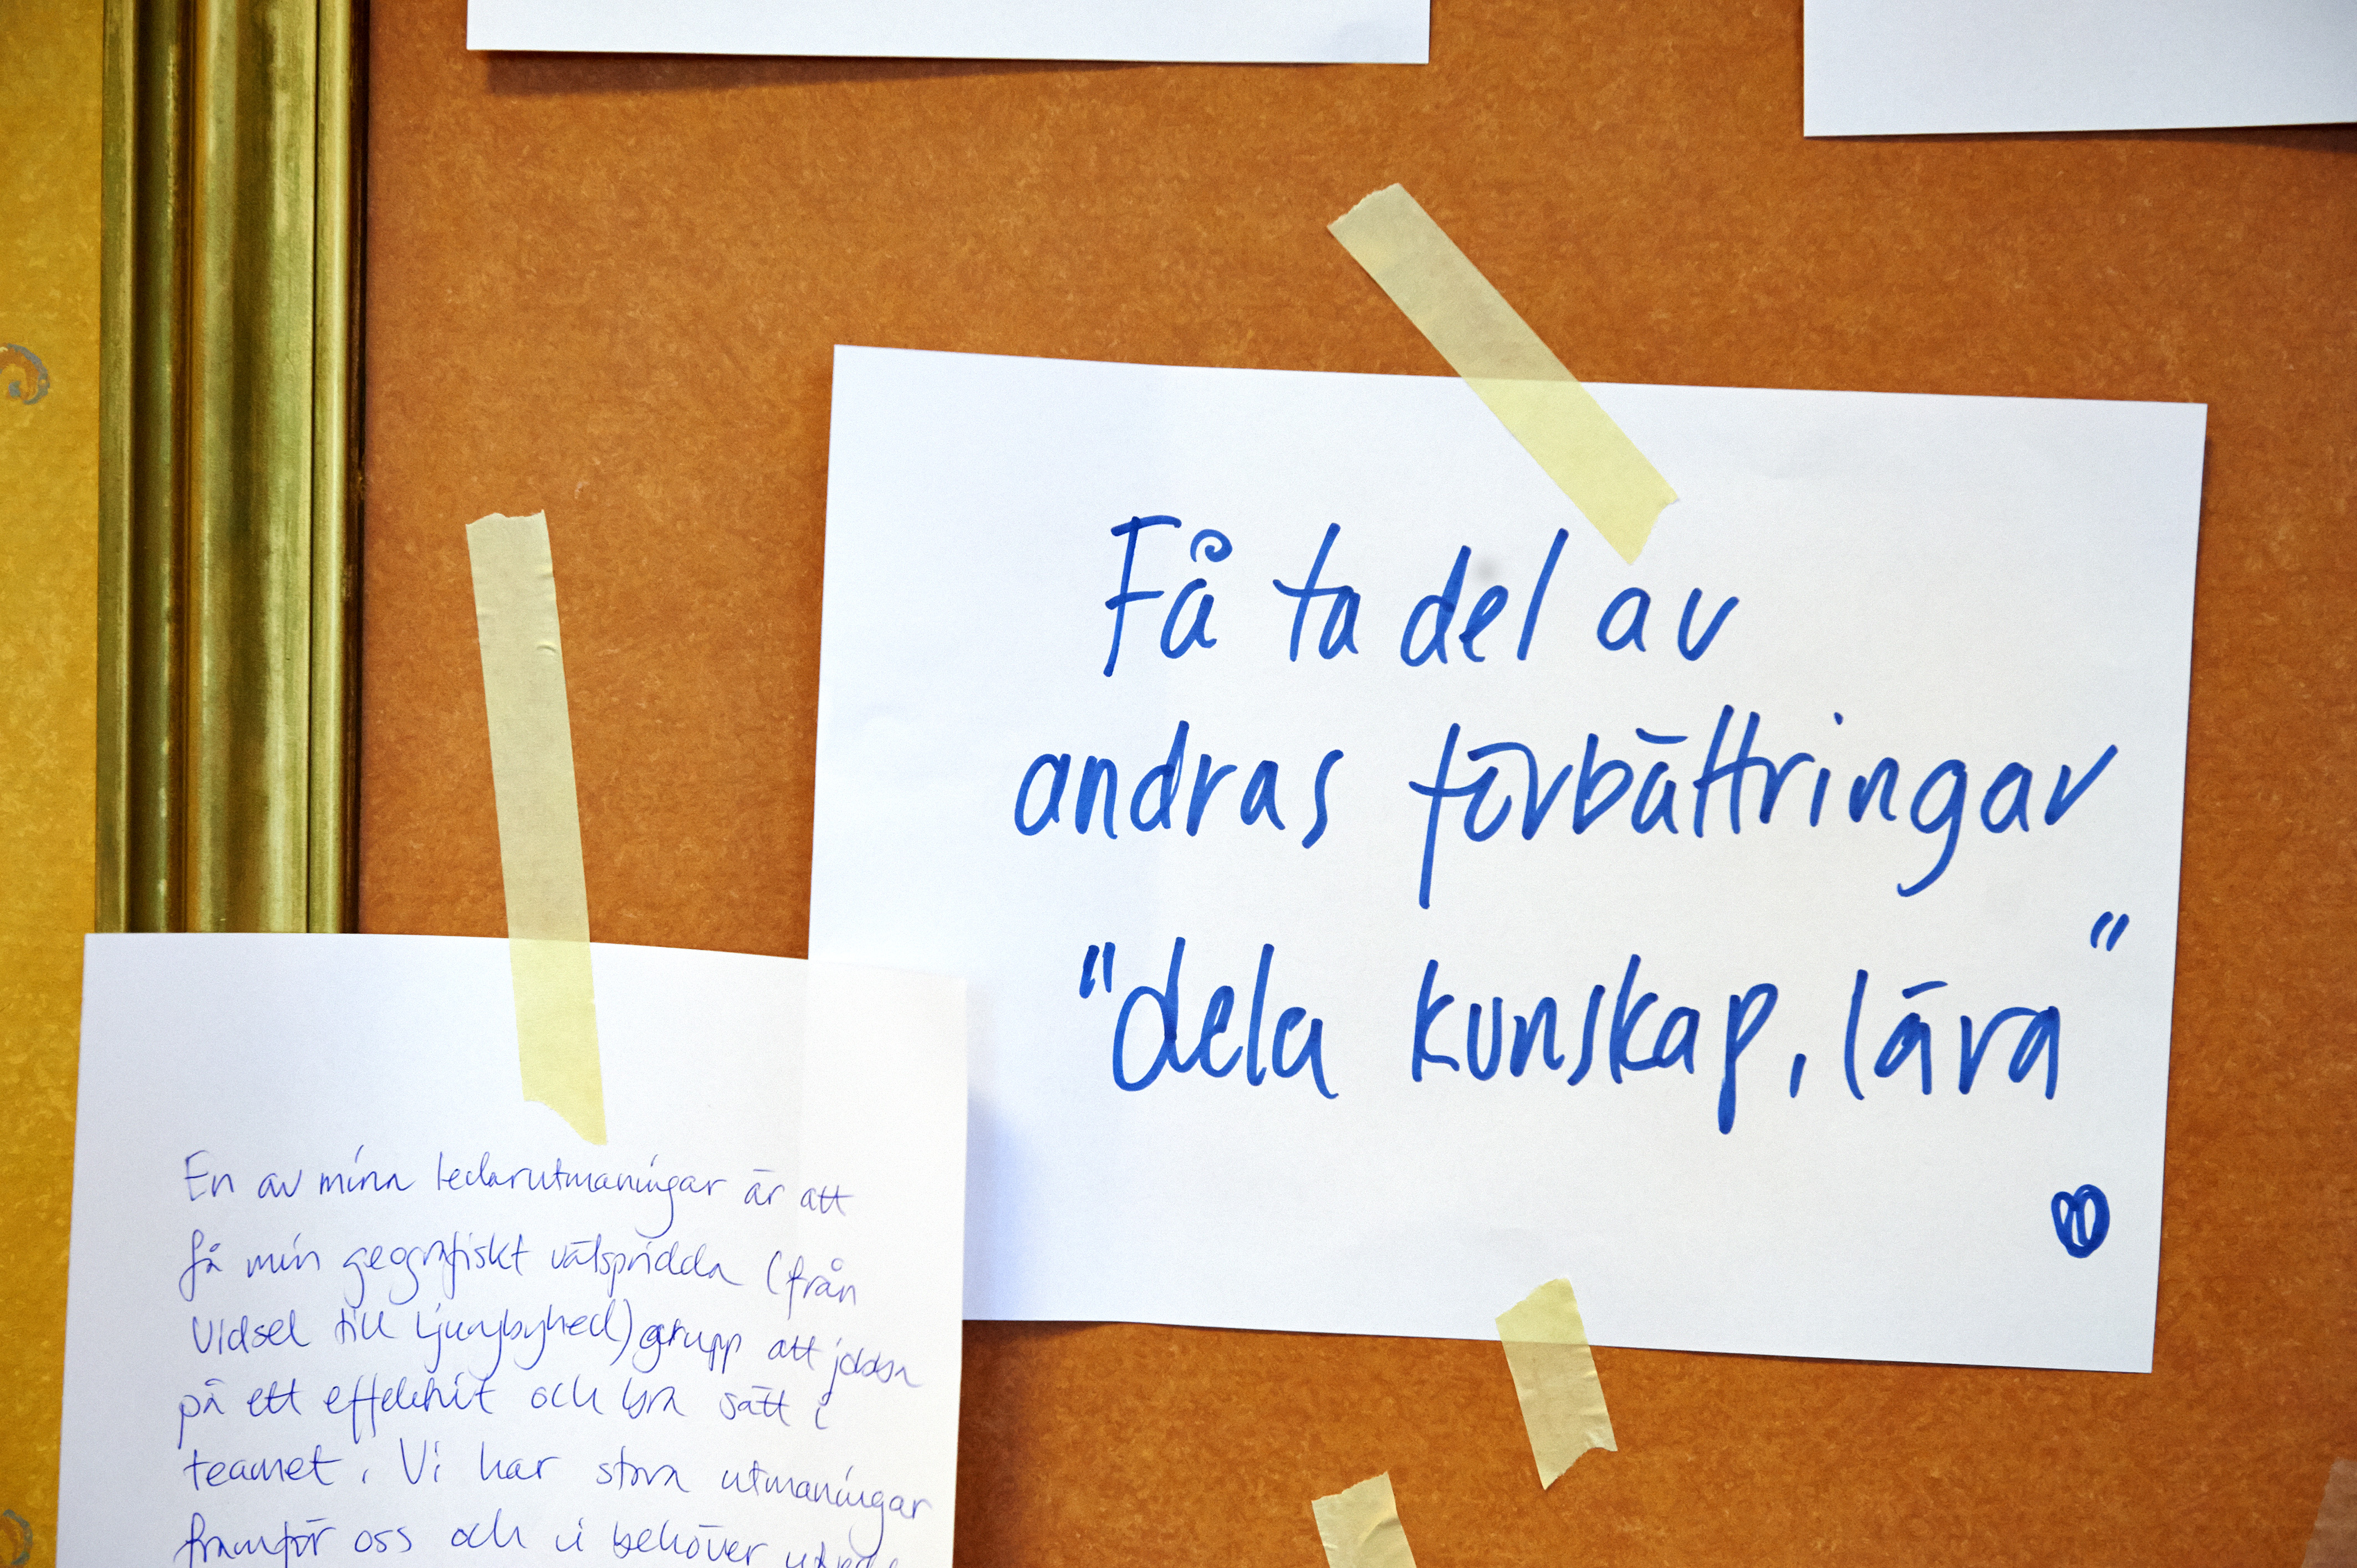 Få ta del av
andras förbättringar
"dela kunskap, lära"
En av mina ledarutmaningar är att
få min geografiskt vätspridda (från
Vidsel till Ljungbyhed) grupp att jobba
på ett effektivt och bra sätt i
teamet. Vi har stora utmaningar
framför oss och vi behöver